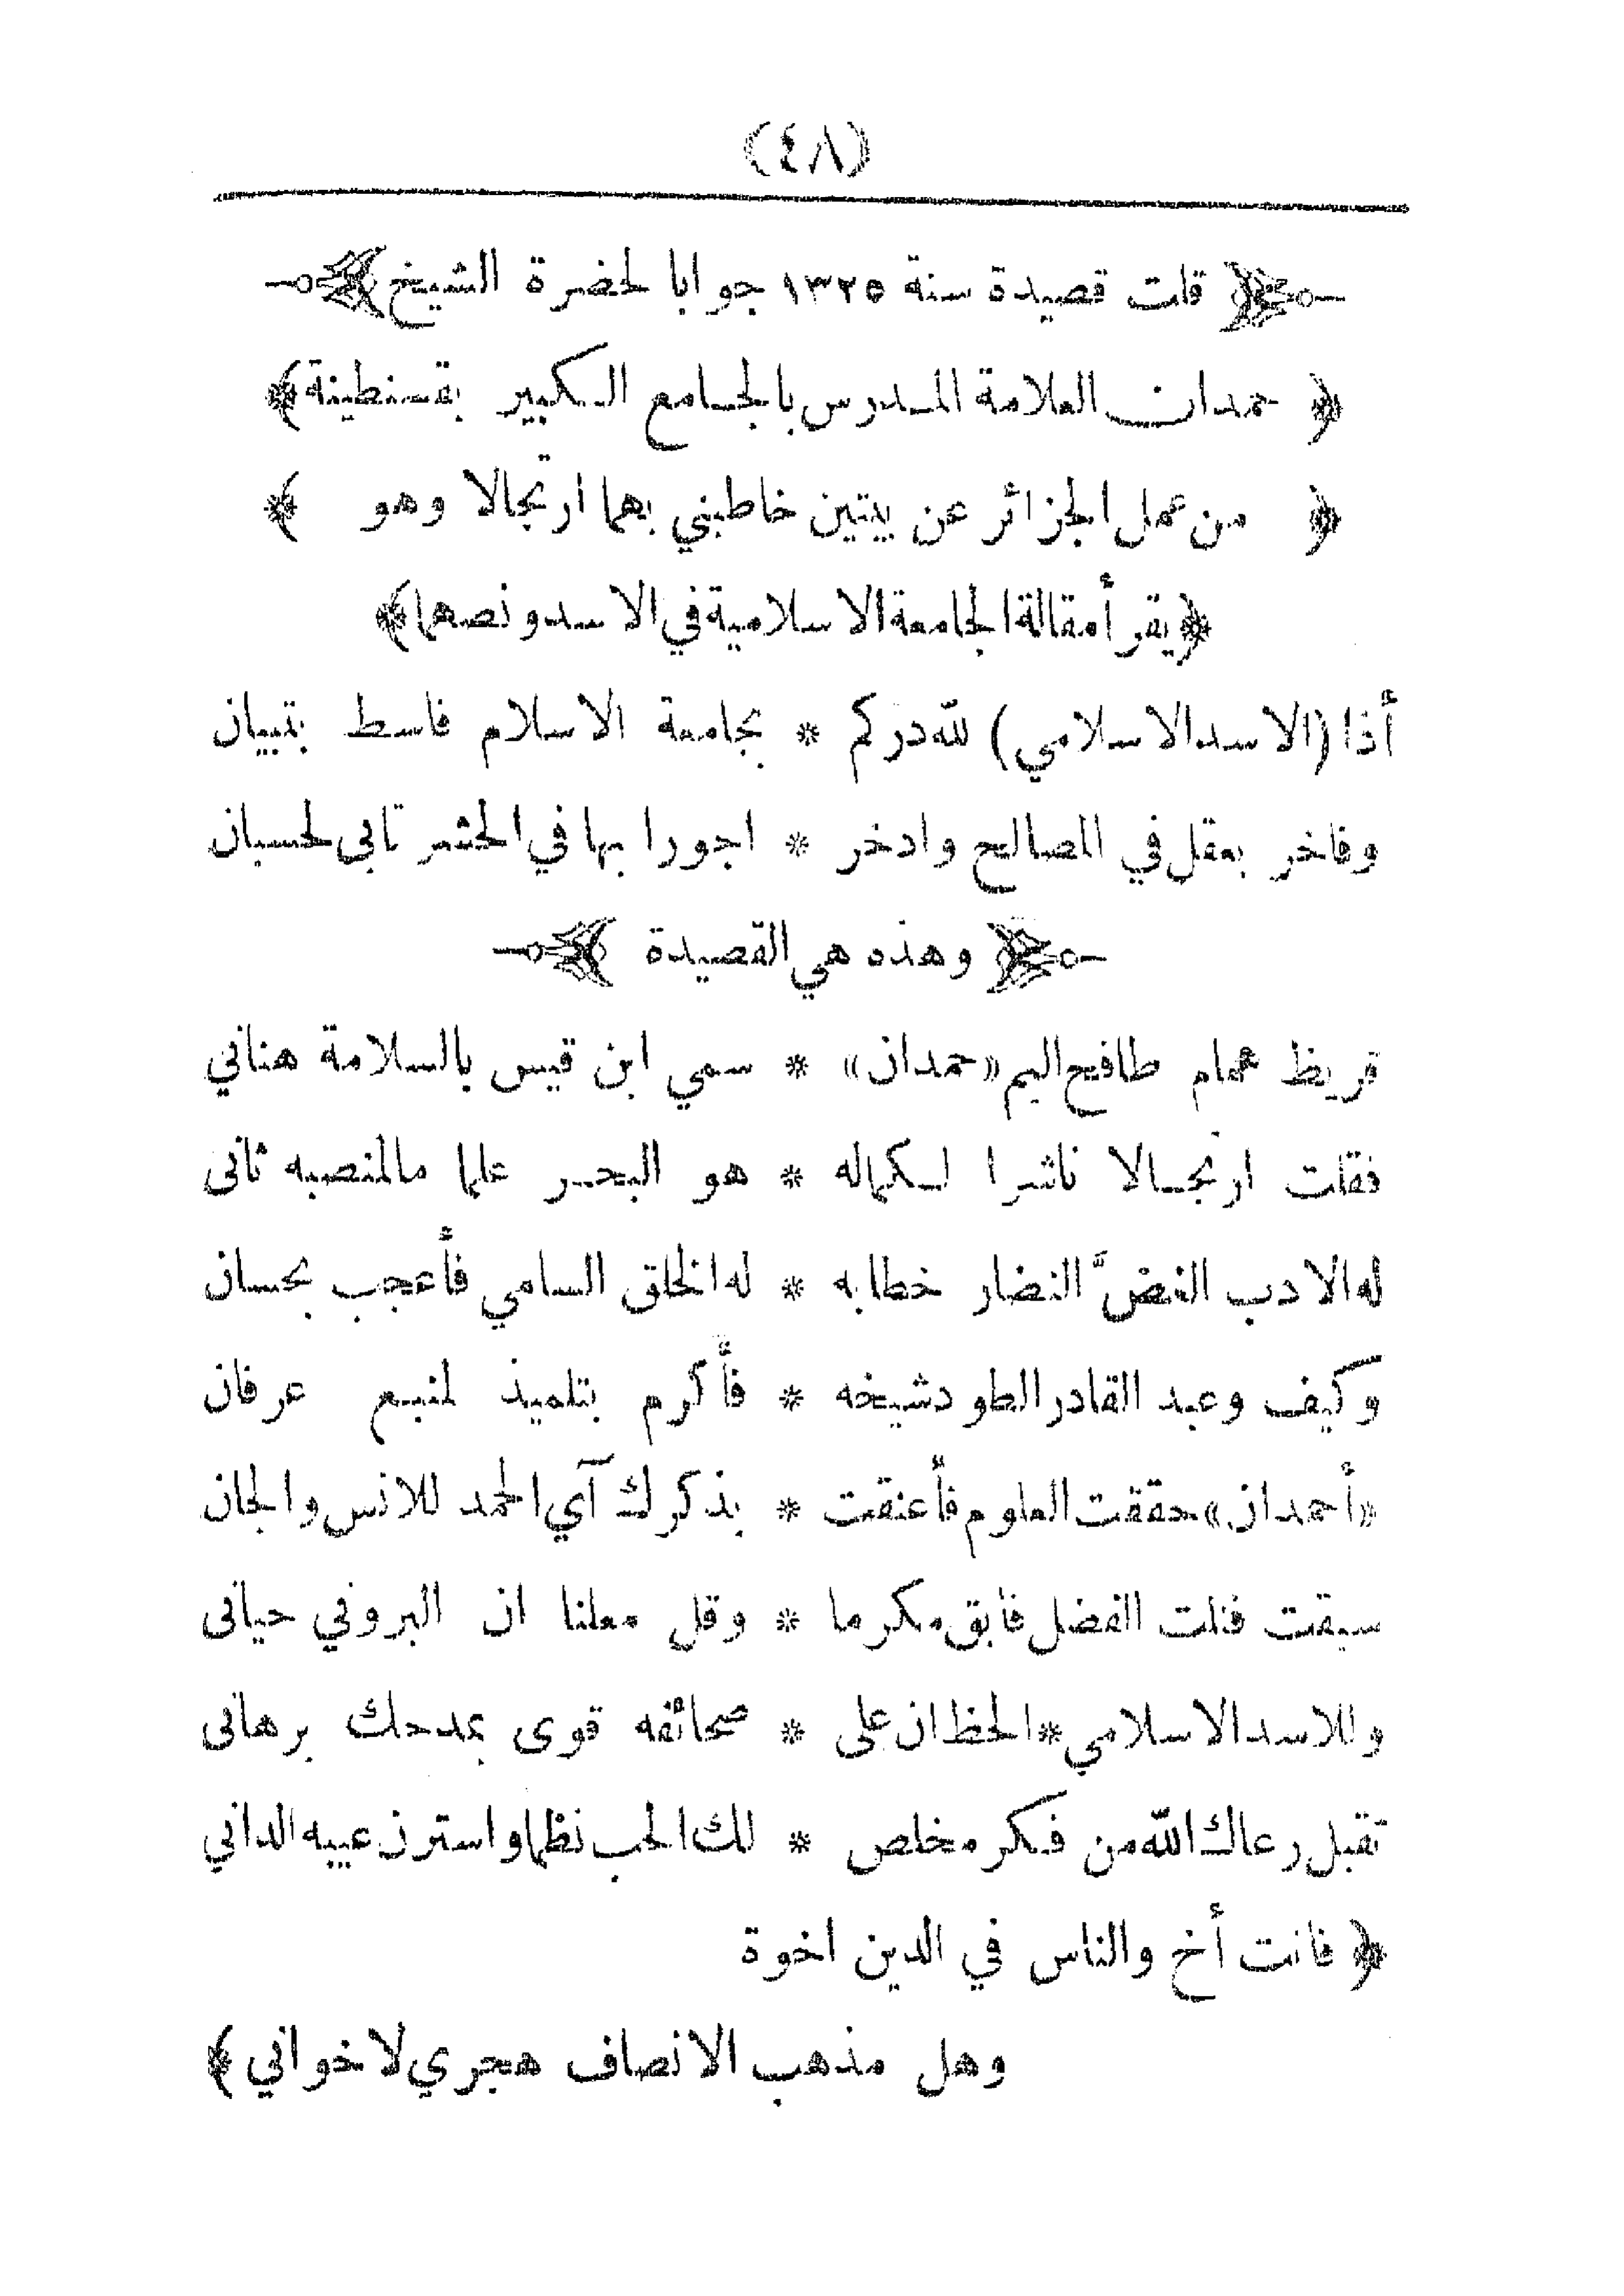 (٤٨)
﴿ قلت قصيدة سنة ١٣٢٥ جوابا لحضرة الشيخ ﴾
﴿ حمدان العلامة المدرس بالجامع الكبير بقسنطينة ﴾
﴿ من عمل الجزائر عن بيتين خاطبني بهما ارتجالا وهو ﴾
﴿ يقرأ مقالة الجامعة الاسلامية في الاسد ونصهما ﴾
أذا (الاسد الاسلامي) لله دركم * بجامعة الاسلام فاسط بتبيان
وفاخر بعقل في المصالح وادخر * اجورا بها في الحشر تابى لحسبان
﴿ وهذه هي القصيدة ﴾
قريظ همام طافح اليم «حمدان» * سمي ابن قيس بالسلامة هناني
فقلت ارتجالا ناشرا لكماله * هو البحر علما مالمنصبه ثانى
له الادب الغضّ النضار خطابه * له الخلق السامي فأعجب بحسان
وكيف وعبد القادر الطود شيخه * فأكرم بتلميذ لمنبع عرفان
«أحمدان» حققت العلوم فأعنقت * بذكرك آي الحمد للانس والجان
سبقت فنلت الفضل فابق مكرما * وقل معلنا ان البروني حيانى
وللاسد الاسلامي * الحظ ان على * صحائفه قوى بمدحك برهانى
تقبل رعاك الله من فكر مخلص * لك الحب نظما واسترن عيبه الداني
﴿ فانت أخ والناس في الدين اخوة
وهل مذهب الانصاف هجري لاخواني ﴾